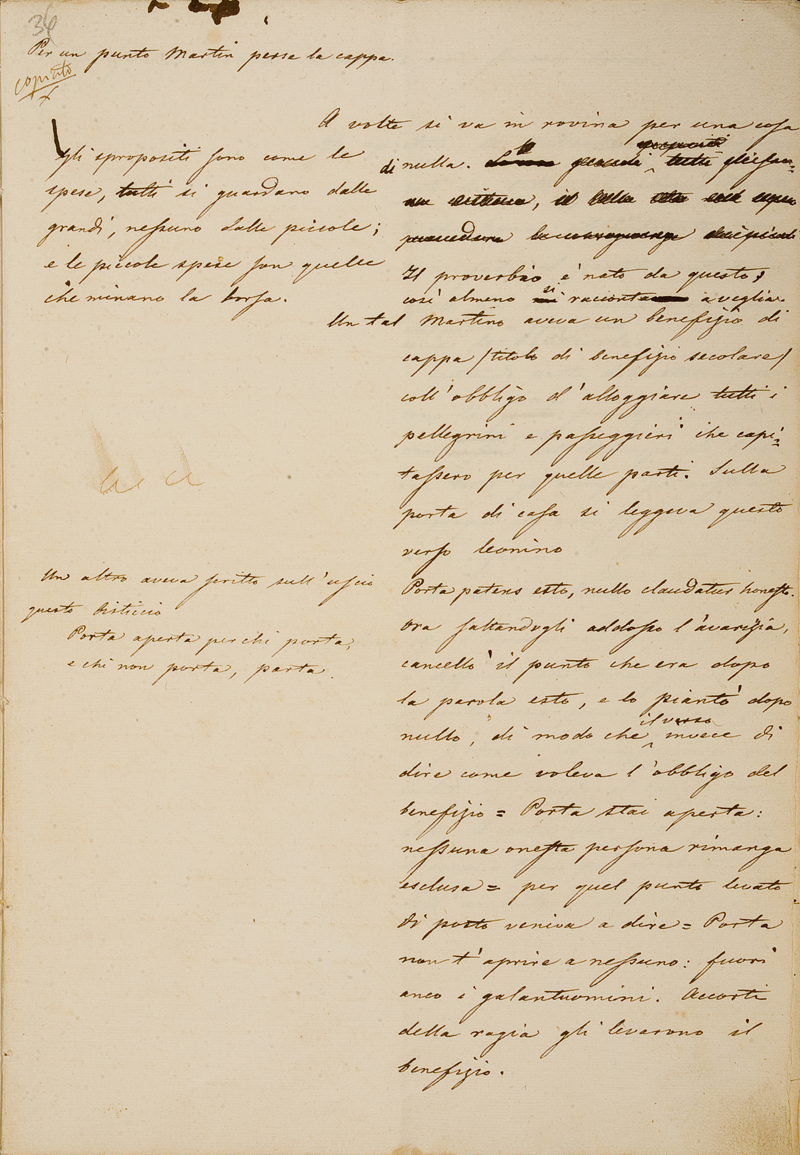 36
Per un punto Martin perse la cappa.
copiato
A volte si va in rovina per una cosa
di nulla. tutti gli
Il proverbio è nato da questo,
così almeno si racconta a veglia.
Un tal Martino aveva un benefizio di
cappa (titolo di benefizio secolare)
coll'obbligo d'alloggiare tutti i
pellegrini e passeggieri che capi=
tassero per quelle parti. Sulla
porta di casa si leggeva questo
verso leonino
Porta patens esto, nullo claudatur honesto.
Ora saltandogli addosso l'avarizia,
cancellò il punto che era dopo
la parola esto, e lo piantò dopo
nullo, di modo che il verso invece di
dire come voleva l'obbligo del
benefizio = Porta stai aperta:
nessuna onesta persona rimanga
esclusa = per quel punto levato
di posto veniva a dire = Porta
non t'aprire a nessuno: fuori
anco i galantuomini. Accorti
della ragia gli levarono il
benefizio.
gli spropositi sono come le
spese, tutti si guardano dalle
grandi, nessuno dalle piccole;
e le piccole spese son quelle
che minano la borsa.
Un altro aveva scritto sull'uscio
questo bisticcio
Porta aperta per chi porta,
e chi non porta, parta.